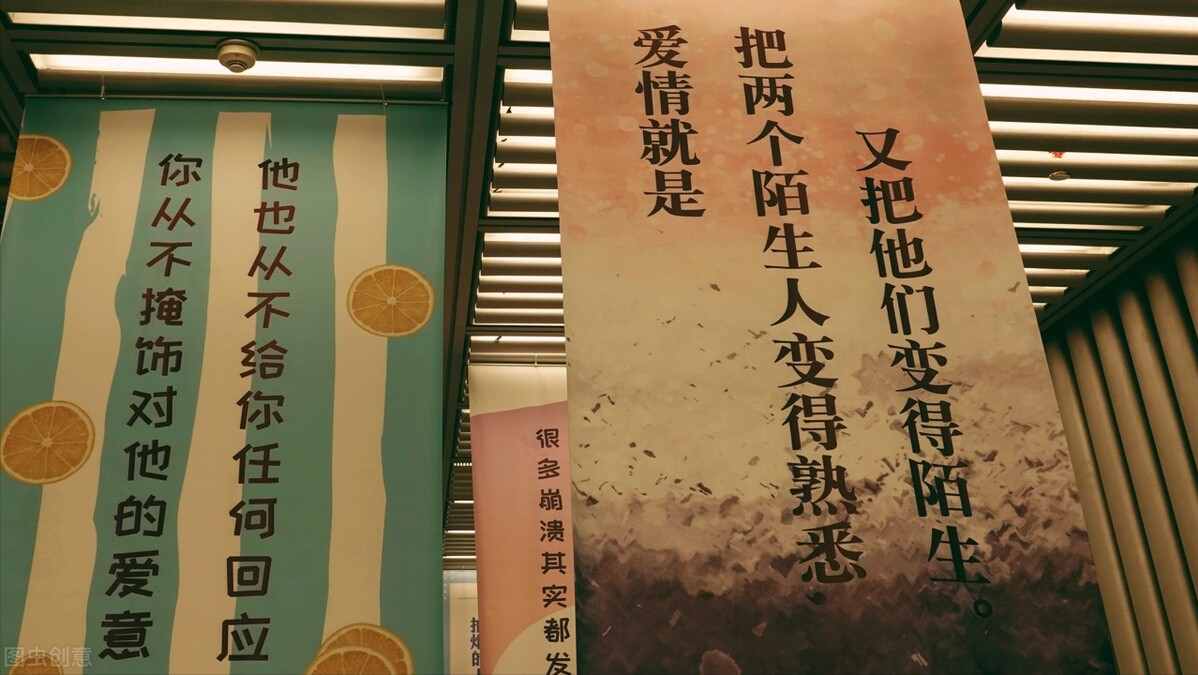 你从不掩饰对他的爱意
他也从不给你任何回应
很多崩溃其实都发
爱情就是
把两个陌生人变得熟悉.
又把他们变得陌生。
图虫创意